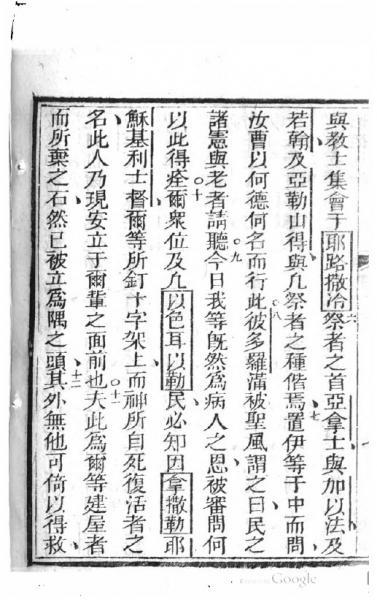 與教士集會于耶路撒冾六祭者之首亞拿士與加以法及
若翰及亞勒山得與凡祭者之種偕焉七置伊等于中而問
汝曹以何德何名而行此八彼多羅滿被聖風謂之曰民之
諸憲與老者請聽九今日我等旣然爲病人之恩被審問何
以此得痊十爾衆位及凡以色耳以勒民必知因拿撒勒耶
穌基利士督爾等所釘十字架上而神所自死復活者之
名此人乃現安立于爾輩之面前也十一夫此爲爾等建屋者
而所棄之石然已被立爲隅之頭十二其外無他可倚以得救
Google